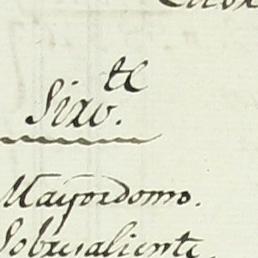 Sirv.te
Mayordomo.
Sobresaliente.